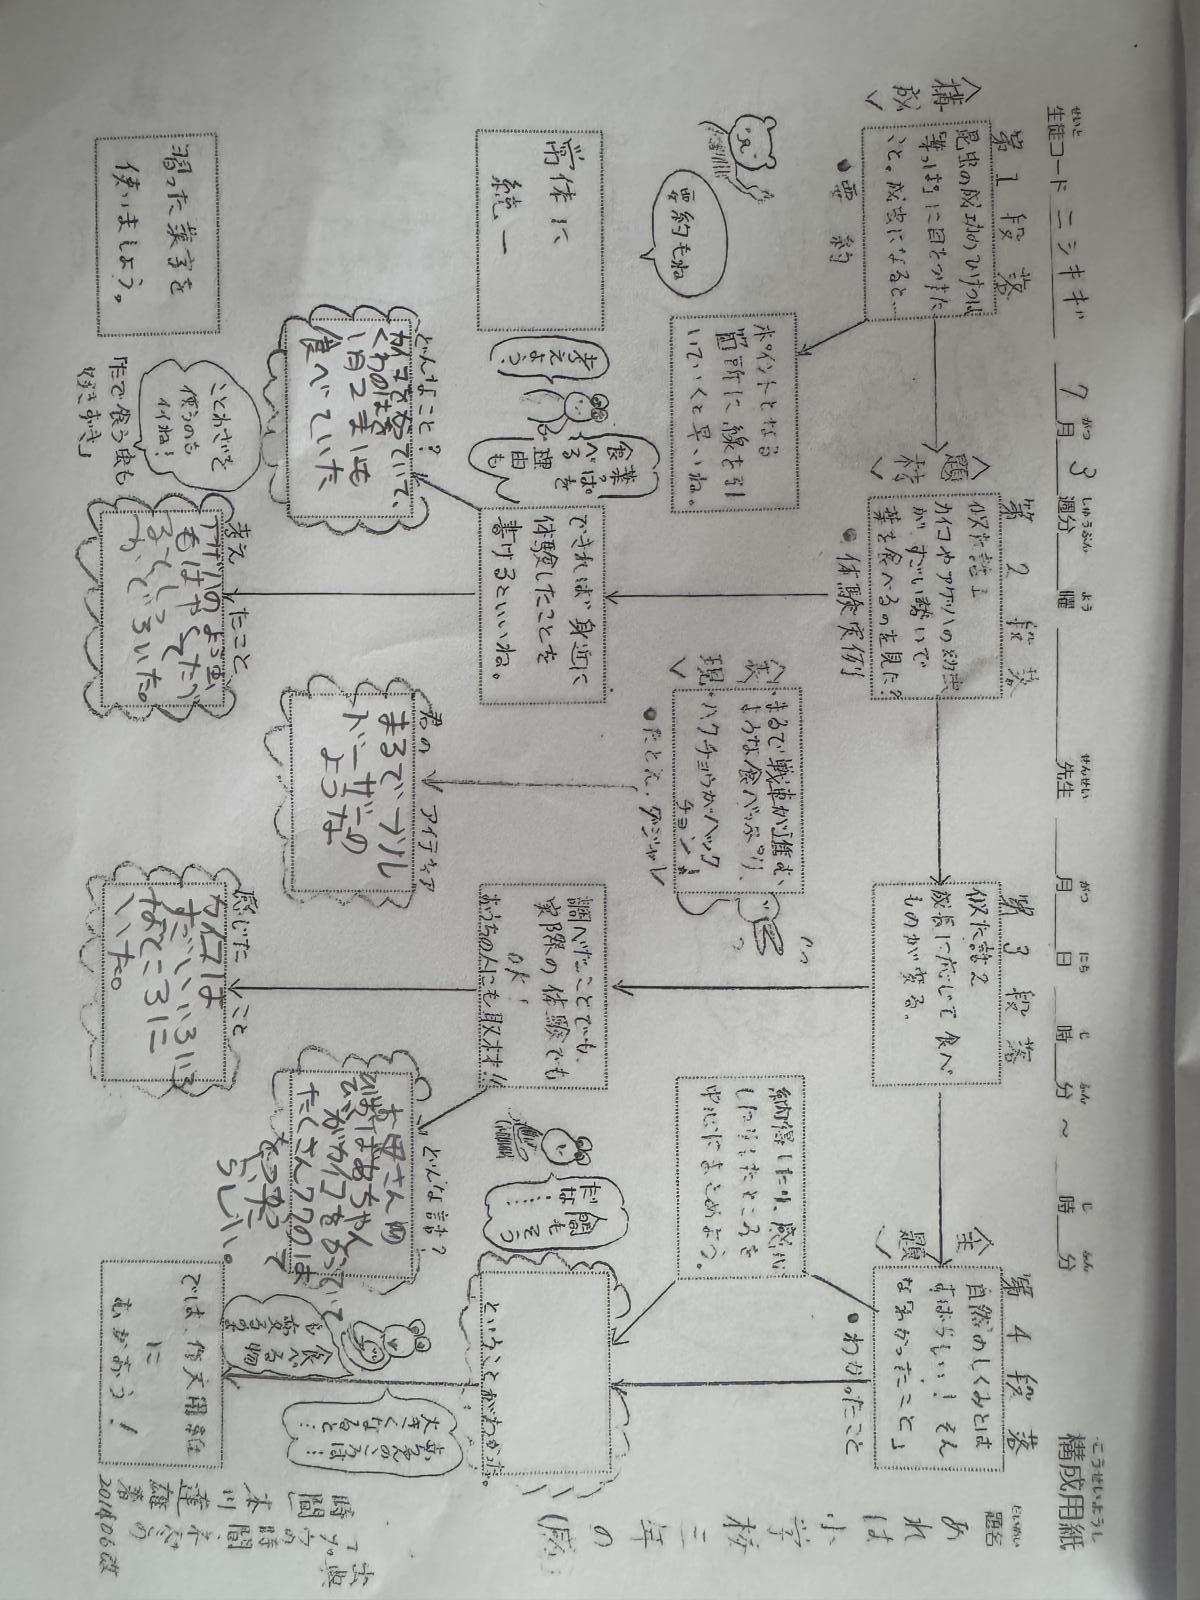 構成用紙
こうせいようし
せいと
生徒コード ニシキギ
7月3週分
がつ しゅうぶん
曜
よう
先生
せんせい
月 日 時 分 ~ 時 分
がつ にち じ ふん じ ふん
題名
だいめい
あれは小学校三年の(感)
<構成>
第1段落
昆虫の成功のひけつは
葉っぱに目をつけた
こと。成虫になると…
●要約
要約もね
ポイントとなる
箇所に線を引
いていくと早いね。
常体に
統一
習った漢字を
使いましょう。
<題材>
第2段落
似た話1
カイコやアゲハの幼虫
が、すごい勢いで
葉を食べるのを見た?
●体験実例
できれば身近に
体験したことを
書けるといいね。
考えよう
葉っぱを
食べる
理由も
どんなこと?
カイコを育てていて、
くわのはを
1日2まいも
食べていた
ことわざを
使うのも
イイね!
「たで食う虫も
好きずき」
考えたこと
アゲハのよう虫
もはやくてたべ
るとしって
おどろいた。
<表現>
・まるで戦車が進む
ような食べっぷり、
・ハクチョウがハック
チョン!
●たとえ・ダジャレ
君のアイディア
まるでブル
ドーザーの
ような
第3段落
似た話2
成長に応じて食べ
ものが変る。
調べたことでも、
実際の体験でも
OK!
おうちの人にも取材!!
感じたこと
カイコは
すごいいろいろ
なところに
いた。
どんな話?
お母さんの
おばあちゃん
がカイコをかっていて
たくさんクワのは
をつんで
らしい。
<主題>
第4段落
自然のしくみとは
すばらしい!そん
な「わかったこと」
●わかったこと
納得したり、感心
したりしたところを
中心にまとめよう。
人間もそう
だな……
ということがわかった。
赤ちゃんのころは…
大きくなると…
食べる物
も変るね
では、作文用紙
に
むかおう!
本川達雄著
201406改